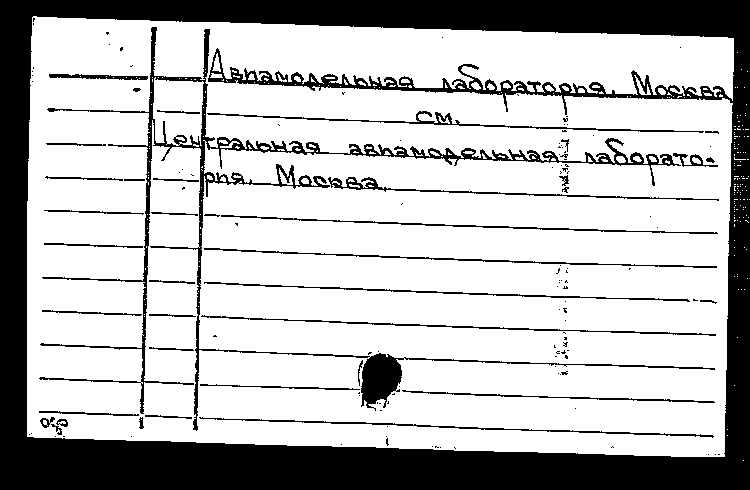 Авиамодельная лаборатория. Москва
см.
Центральная авиамодельная лаборато-
рия. Москва.